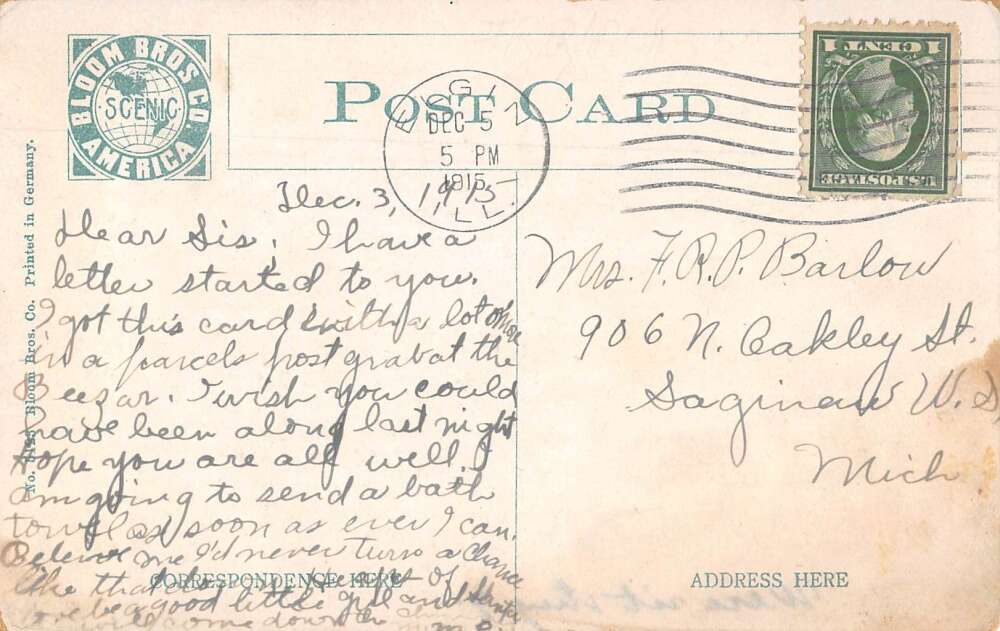 BLOOM BROS. CO.
SCENIC
AMERICA
No. Bloom Bros. Co. Printed in Germany.
POST CARD
ELGIN
DEC 5
5 PM
1915
ILL.
1 CENT 1
U.S. POSTAGE
Dec. 3, 1915
Dear Sis, I have a
letter started to you.
I got this card with a lot more
in a parcels post grab at the
Beezar. I wish you could
have been along last night
Hope you are all well. I
am going to send a bath
towel as soon as ever I can.
Believe me I'd never turn a chance
like that down
be a good little girl and
will come down
CORRESPONDENCE HERE
Mrs. F. R. P. Barlow
906 N. Oakley St.
Saginaw W. S
Mich
ADDRESS HERE